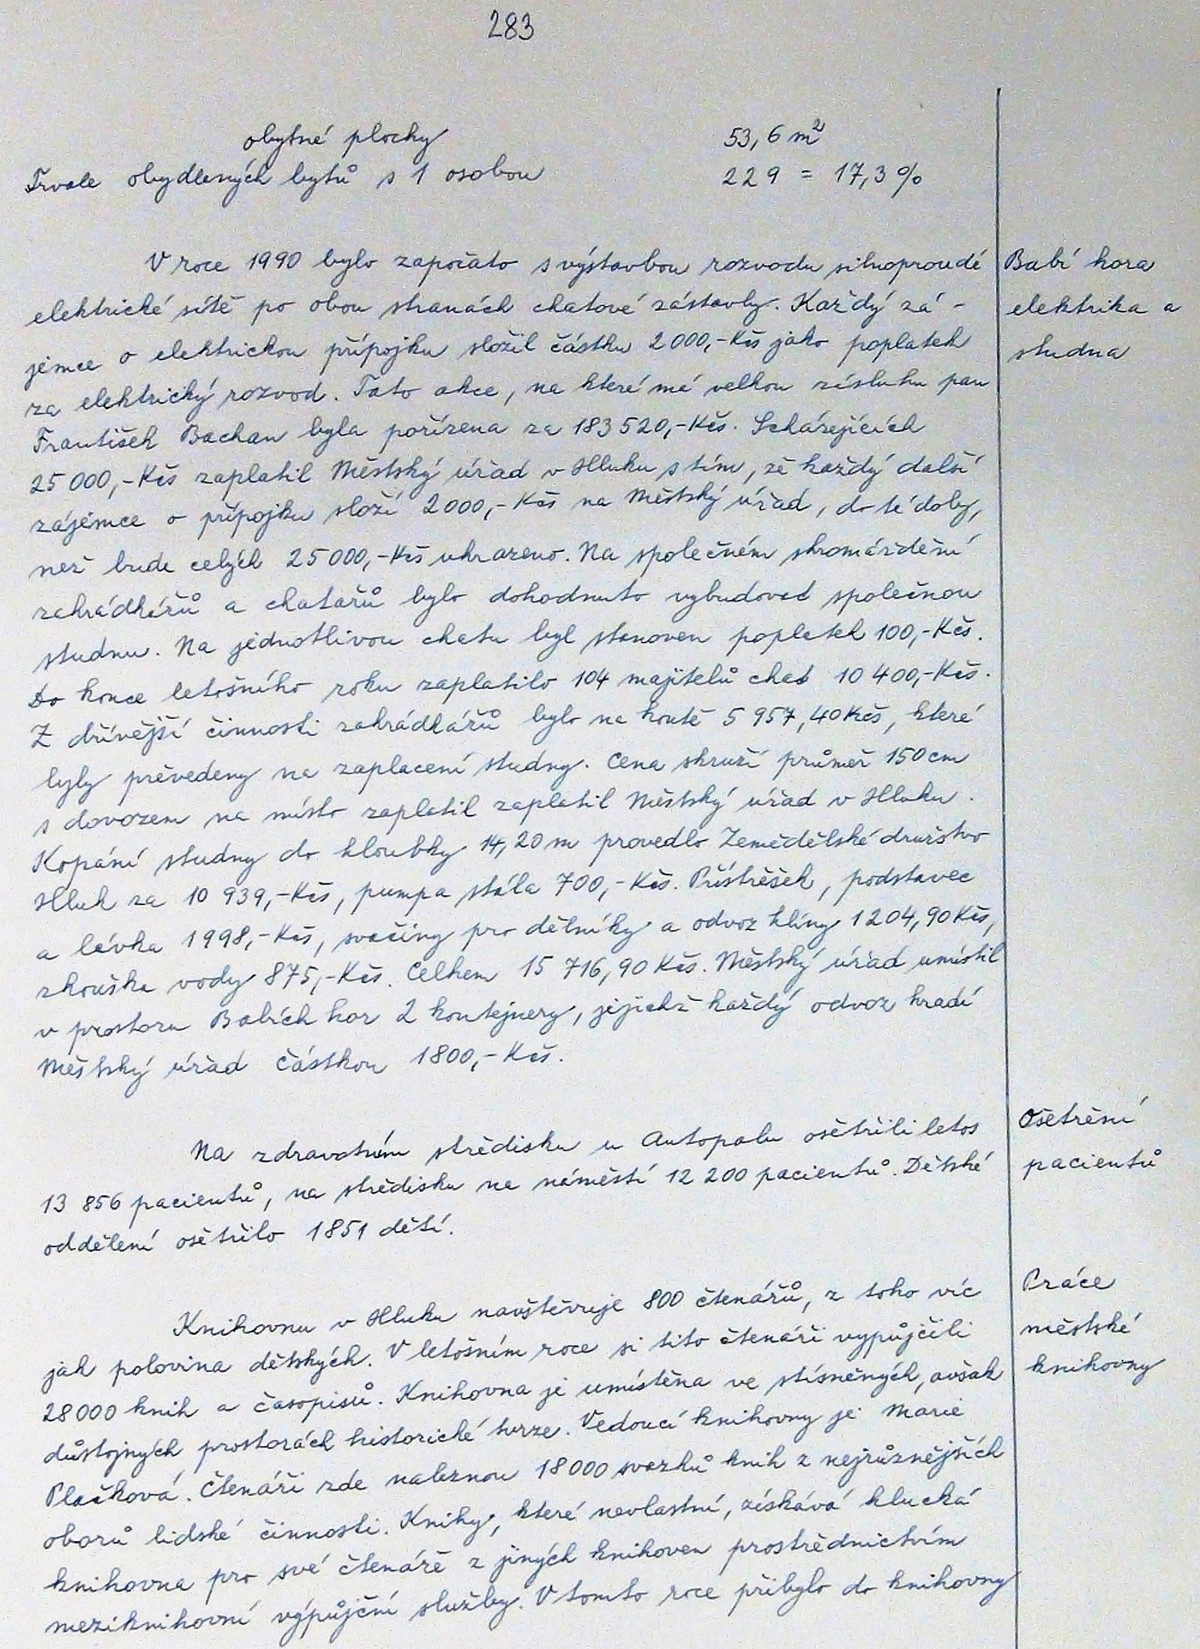 283
obytné plochy 53,6 m²
Trvale obydlených bytů s 1 osobou 229 = 17,3 %
V roce 1990 bylo započato s výstavbou rozvodu silnoproudé
elektrické sítě po obou stranách chatové zástavby. Každý zá-
jemce o elektrickou přípojku složil částku 2 000,-Kčs jako poplatek
za elektrický rozvod. Tato akce, na které má velkou zásluhu pan
František Bachan byla pořízena za 183 520,-Kčs. Scházejících
25 000,-Kčs zaplatil Městský úřad v Hluku s tím, že každý další
zájemce o přípojku složí 2 000,-Kčs na Městský úřad, do té doby,
než bude celých 25 000,-Kčs uhrazeno. Na společném shromáždění
zahrádkářů a chatařů bylo dohodnuto vybudovat společnou
studnu. Na jednotlivou chatu byl stanoven poplatek 100,-Kčs.
Do konce letošního roku zaplatilo 104 majitelů chat 10 400,-Kčs.
Z dřívější činnosti zahrádkářů bylo na kontě 5 957,40 Kčs, které
byly převedeny na zaplacení studny. Cena skruží průměr 150 cm
s dovozem na místo zaplatil zaplatil Městský úřad v Hluku.
Kopání studny do hloubky 14,20 m provedlo Zemědělské družstvo
Hluk za 10 939,-Kčs, pumpa stála 700,-Kčs. Přístřešek, podstavec
a lávka 1998,-Kčs, svačiny pro dělníky a odvoz hlíny 1 204,90 Kčs,
zkouška vody 875,-Kčs. Celkem 15 716,90 Kčs. Městský úřad umístil
v prostoru Babích hor 2 kontejnery, jejichž každý odvoz hradí
Městský úřad částkou 1800,-Kčs.
Babí hora
elektrika a
studna
Na zdravotním středisku u Autopalu ošetřili letos
13 856 pacientů, na středisku na náměstí 12 200 pacientů. Dětské
oddělení ošetřilo 1851 dětí.
Ošetření
pacientů
Knihovnu v Hluku navštěvuje 800 čtenářů, z toho víc
jak polovina dětských. V letošním roce si tito čtenáři vypůjčili
28 000 knih a časopisů. Knihovna je umístěna ve stísněných, avšak
důstojných prostorách historické tvrze. Vedoucí knihovny je Marie
Plačková. Čtenáři zde naleznou 18 000 svazků knih z nejrůznějších
oborů lidské činnosti. Knihy, které nevlastní, získává hlucká
knihovna pro své čtenáře z jiných knihoven prostřednictvím
meziknihovní výpůjční služby. V tomto roce přibylo do knihovny
Práce
městské
knihovny